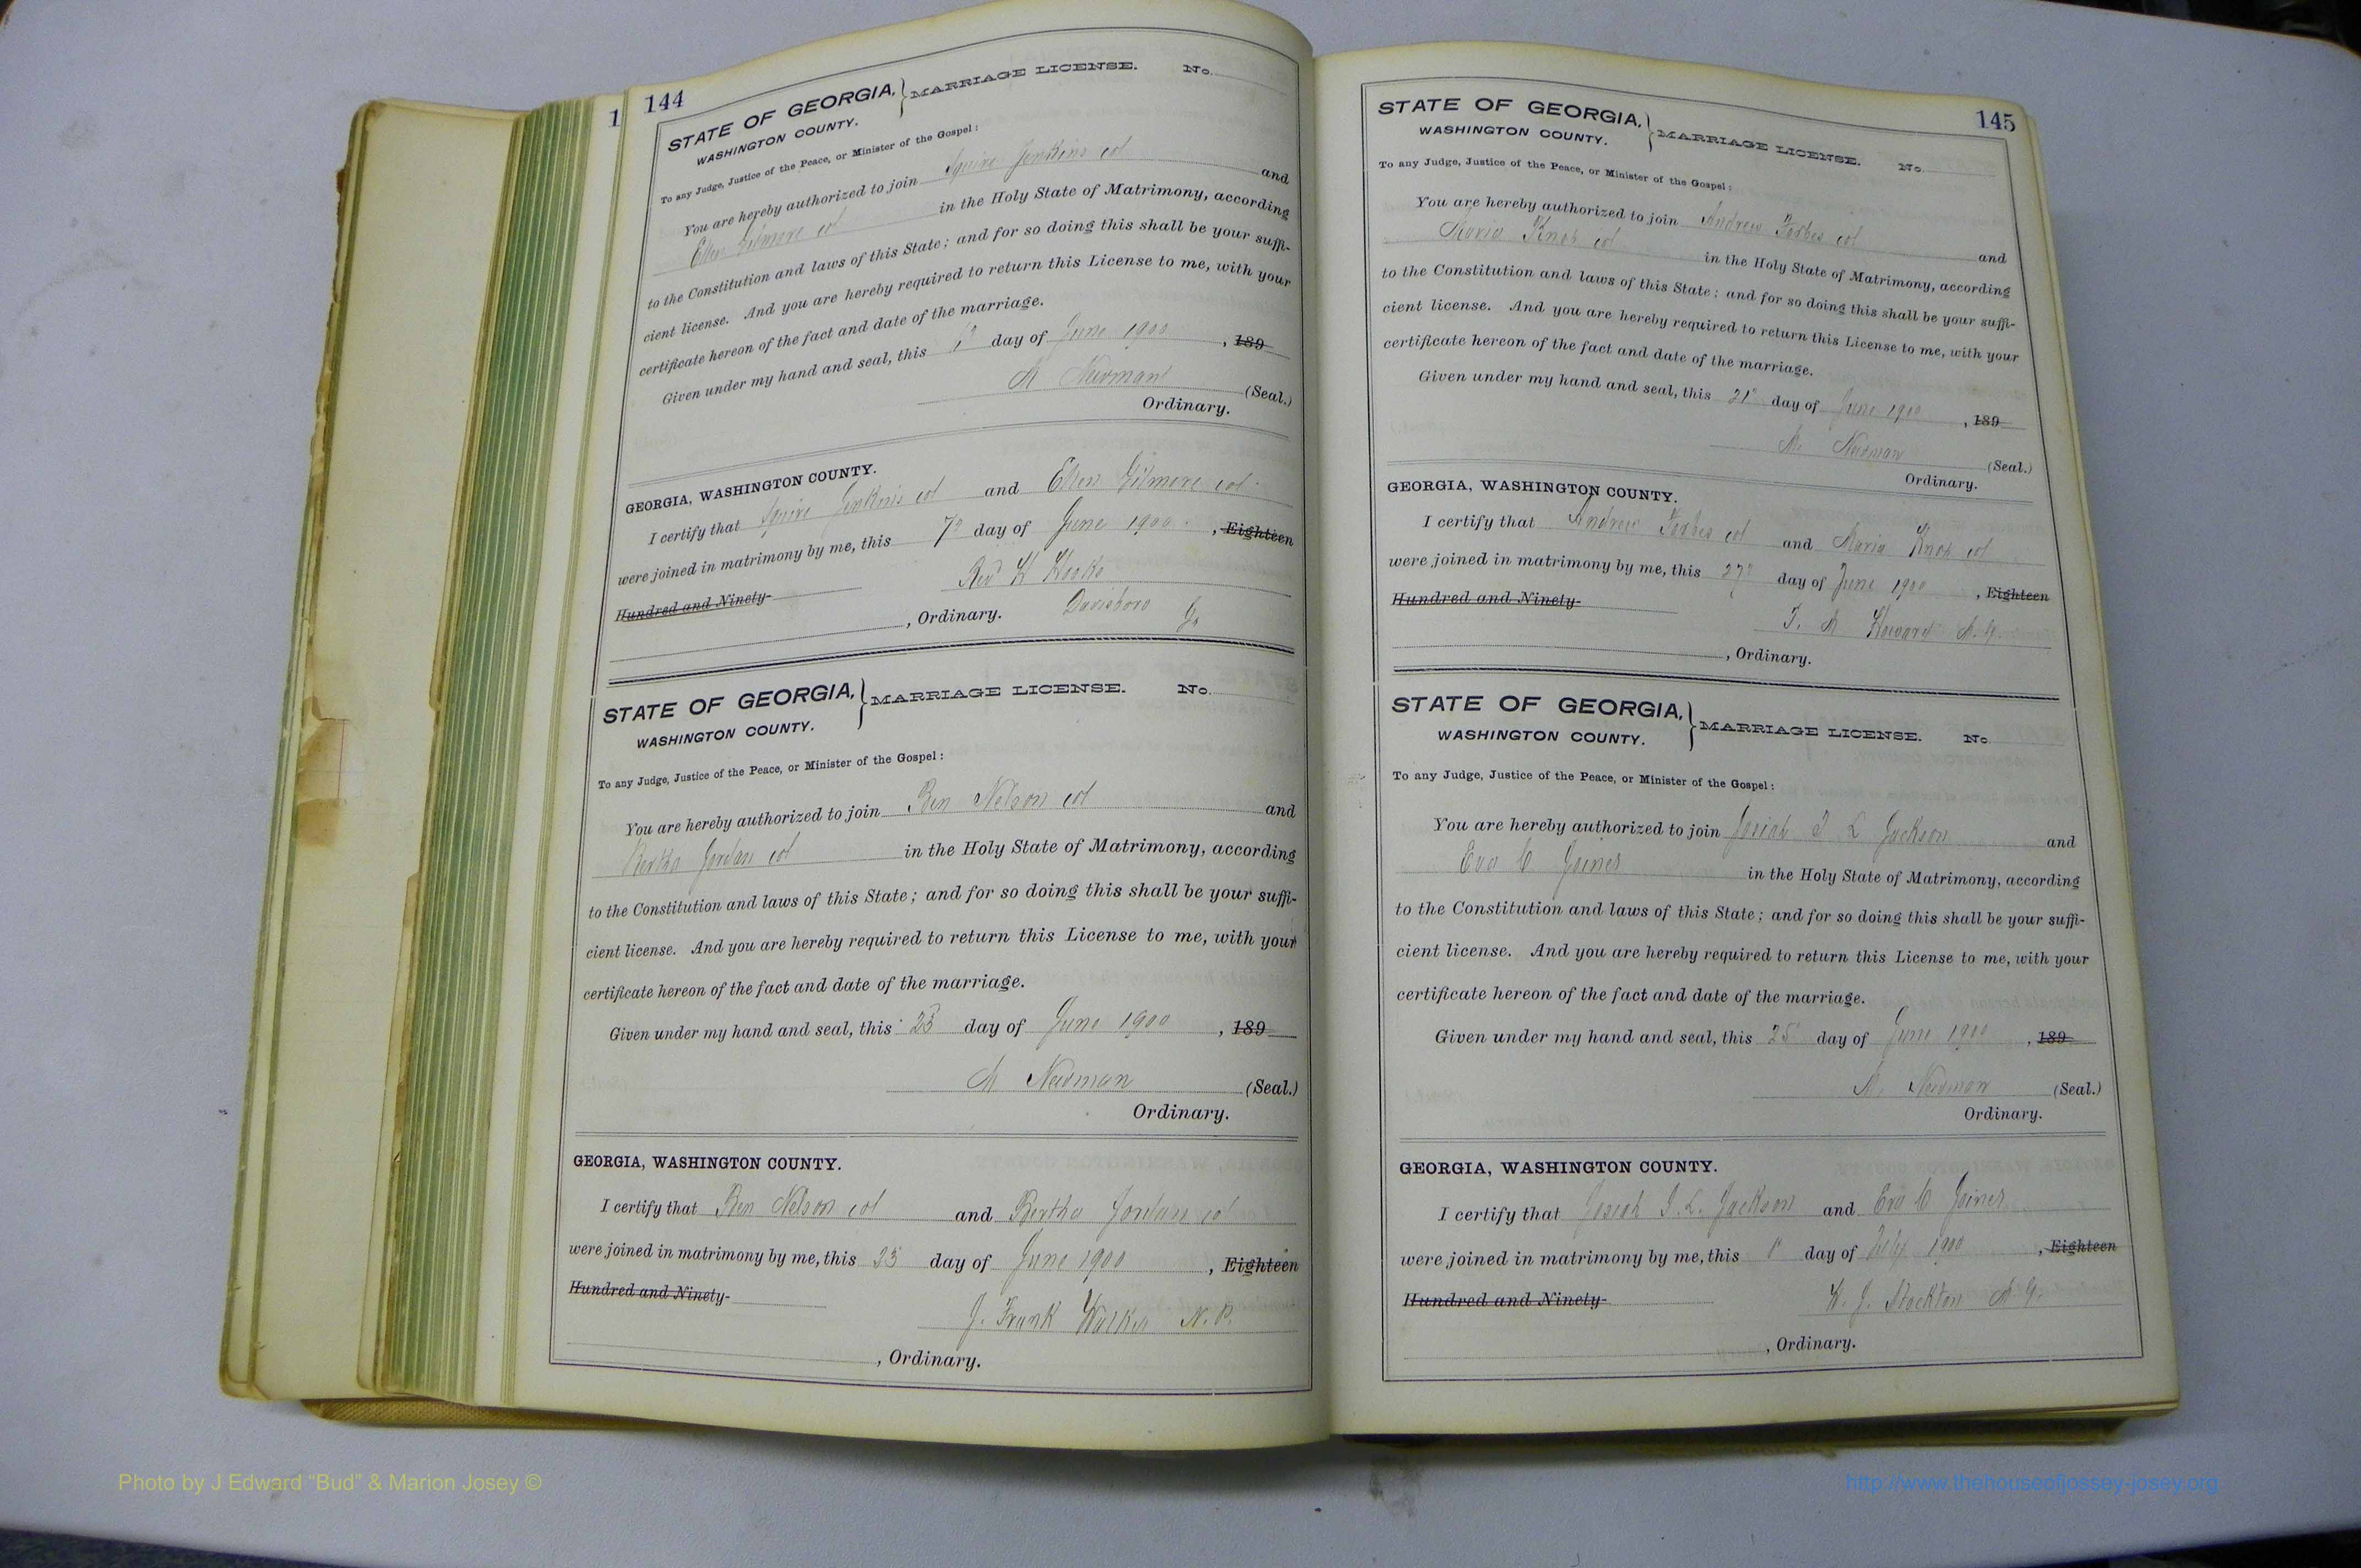 1
144
STATE OF GEORGIA, } MARRIAGE LICENSE. No.
WASHINGTON COUNTY.
To any Judge, Justice of the Peace, or Minister of the Gospel:
You are hereby authorized to join Squire Jenkins col and
Ellen Gilmore col in the Holy State of Matrimony, according
to the Constitution and laws of this State; and for so doing this shall be your suffi-
cient license. And you are hereby required to return this License to me, with your
certificate hereon of the fact and date of the marriage.
Given under my hand and seal, this day of June 1900, 189
M Newman (Seal.)
Ordinary.
GEORGIA, WASHINGTON COUNTY.
I certify that Squire Jenkins col and Ellen Gilmore col
were joined in matrimony by me, this 7" day of June 1900, Eighteen
Hundred and Ninety- Rev
, Ordinary. Davisboro Ga
STATE OF GEORGIA, } MARRIAGE LICENSE. No.
WASHINGTON COUNTY.
To any Judge, Justice of the Peace, or Minister of the Gospel:
You are hereby authorized to join Ben Nelson col and
Bertha Jordan col in the Holy State of Matrimony, according
to the Constitution and laws of this State; and for so doing this shall be your suffi-
cient license. And you are hereby required to return this License to me, with your
certificate hereon of the fact and date of the marriage.
Given under my hand and seal, this 23 day of June 1900, 189
M Newman (Seal.)
Ordinary.
GEORGIA, WASHINGTON COUNTY.
I certify that Ben Nelson col and Bertha Jordan col
were joined in matrimony by me, this day of June 1900, Eighteen
Hundred and Ninety-
J. Frank Walker N.P.
, Ordinary.
145
STATE OF GEORGIA, } MARRIAGE LICENSE. No.
WASHINGTON COUNTY.
To any Judge, Justice of the Peace, or Minister of the Gospel:
You are hereby authorized to join Andrew Forbes col and
Maria col in the Holy State of Matrimony, according
to the Constitution and laws of this State; and for so doing this shall be your suffi-
cient license. And you are hereby required to return this License to me, with your
certificate hereon of the fact and date of the marriage.
Given under my hand and seal, this 21" day of June 1900, 189
M. Newman (Seal.)
Ordinary.
GEORGIA, WASHINGTON COUNTY.
I certify that Andrew Forbes col and Maria col
were joined in matrimony by me, this 27" day of June 1900, Eighteen
Hundred and Ninety-
Howard
, Ordinary.
STATE OF GEORGIA, } MARRIAGE LICENSE. No.
WASHINGTON COUNTY.
To any Judge, Justice of the Peace, or Minister of the Gospel:
You are hereby authorized to join Josiah J L Jackson and
Eva C Joines in the Holy State of Matrimony, according
to the Constitution and laws of this State; and for so doing this shall be your suffi-
cient license. And you are hereby required to return this License to me, with your
certificate hereon of the fact and date of the marriage.
Given under my hand and seal, this 25 day of June 1900, 189
M. Newman (Seal.)
Ordinary.
GEORGIA, WASHINGTON COUNTY.
I certify that Josiah J. L. Jackson and Eva C Joines
were joined in matrimony by me, this day of July 1900, Eighteen
Hundred and Ninety-
J. Stockton
, Ordinary.
Photo by J Edward "Bud" & Marion Josey ©
http://www.thehouseofjossey-josey.org